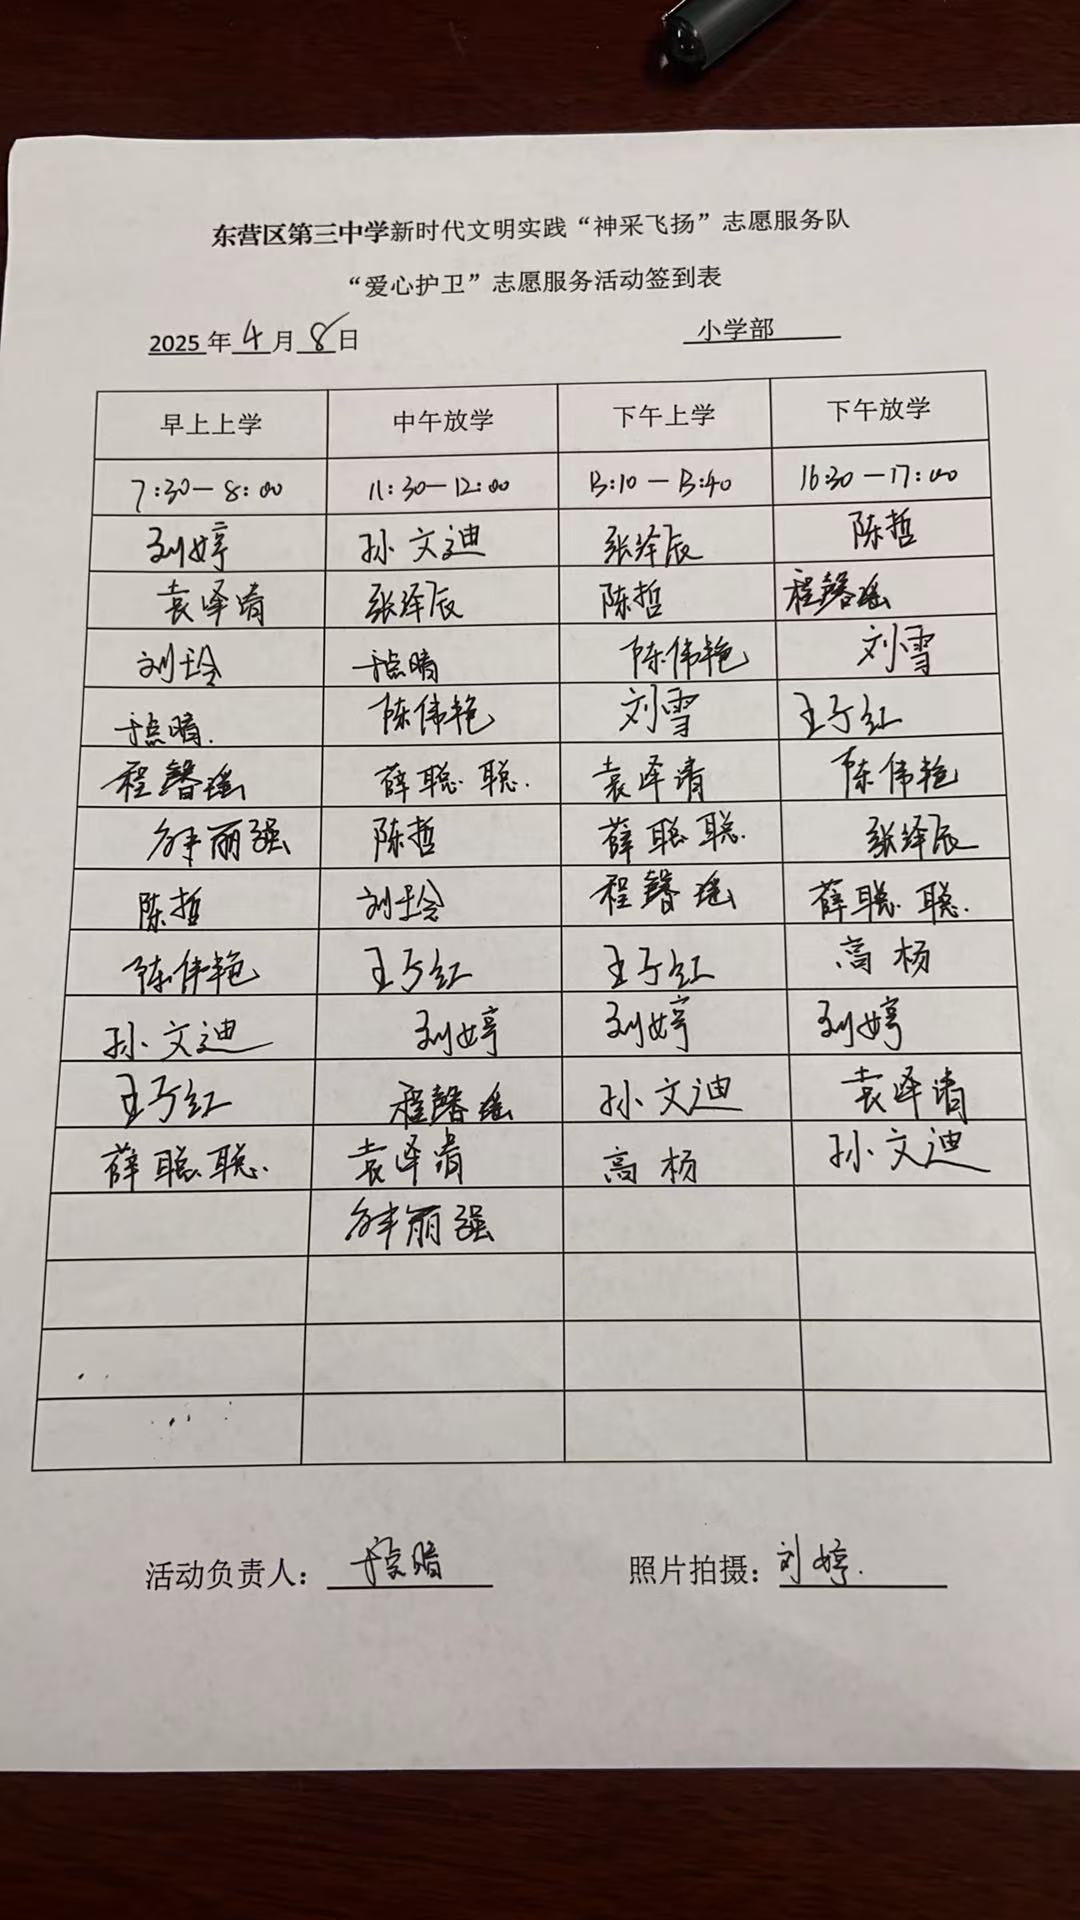 东营区第三中学新时代文明实践“神采飞扬”志愿服务队
“爱心护卫”志愿服务活动签到表
2025 年 4 月 8 日 小学部
早上上学 中午放学 下午上学 下午放学
7:30—8:00 11:30—12:00 13:10—13:40 16:30—17:00
刘婷 孙文迪 张泽辰 陈哲
袁泽清 张泽辰 陈哲 程馨瑶
刘玲 于点晴 陈伟艳 刘雪
于点晴. 陈伟艳 刘雪 王于红
程馨瑶 薛聪聪. 袁泽清 陈伟艳
丽强 陈哲 薛聪聪. 张泽辰
陈哲 刘玲 程馨瑶 薛聪聪.
陈伟艳 王于红 王于红 高杨
孙文迪 刘婷 刘婷 刘婷
王于红 程馨瑶 孙文迪 袁泽清
薛聪聪. 袁泽清 高杨 孙文迪
丽强
活动负责人：于点晴 照片拍摄：刘婷.